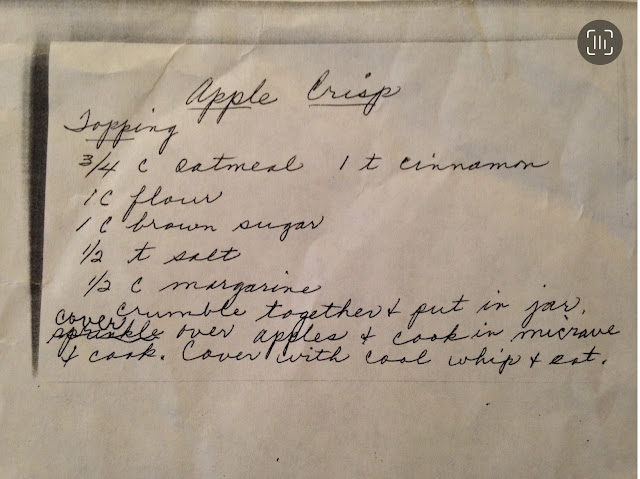 Apple Crisp
Topping
3/4 c oatmeal 1 t cinnamon
1 c flour
1 c brown sugar
1/2 t salt
1/2 c margarine
crumble together & put in jar.
cover sprinkle over apples & cook in micrave
& cook. Cover with cool whip & eat.